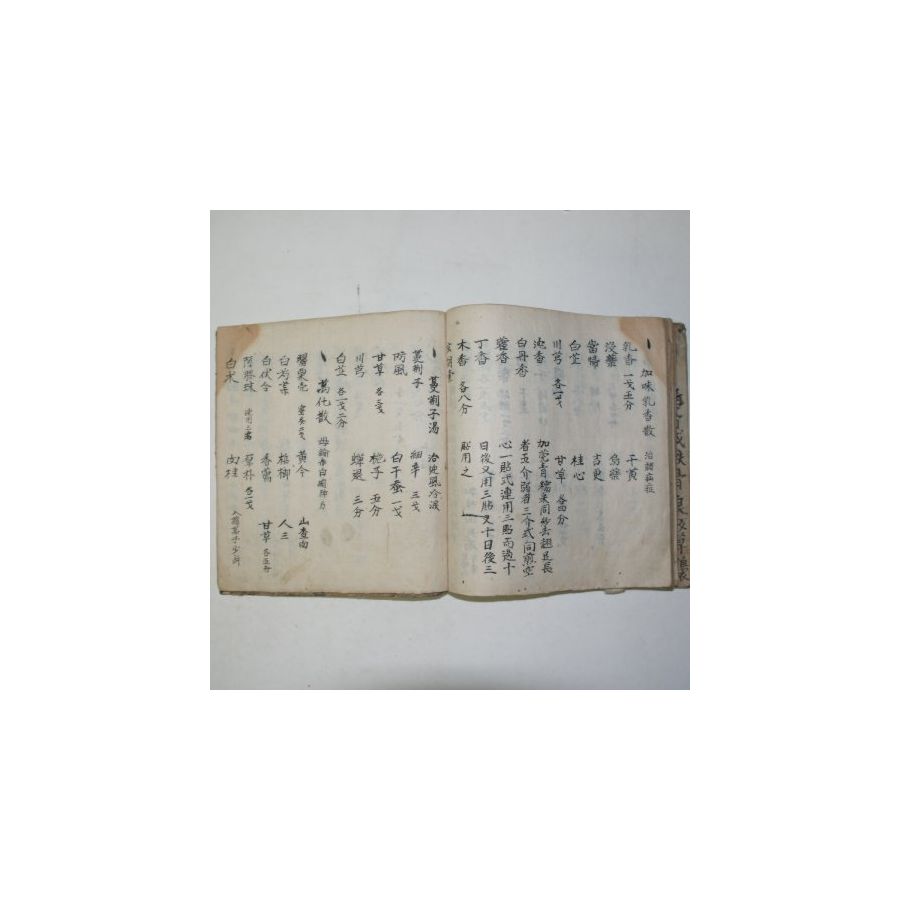 加味乳香散 治諸瘡痘
乳香 一戔五分 干黄
没藥 烏藥
當帰 吉更
白芷 桂心
川芎 各一戔 甘草 各四分
沈香 加蔥青糯米同炒去翅足長
白丹香 者五介弱者三介式同煎空
藿香 心一貼式連用三貼而過十
丁香 日後又用三貼又十日後三
木香 各八分 貼用之
蔓荊子湯 治
蔓荊子 細辛 三戔
防風 白干蚕 一戔
甘草 各二戔 梔子 五分
川芎 蟬退 三分
白芷 各一戔二分
萬化散
罌粟壳 黄今 山査肉
白芍藥 檳榔 人三
白伏令 香薷 甘草 各五分
阿膠珠 厚朴 各一戔
白朮 肉桂